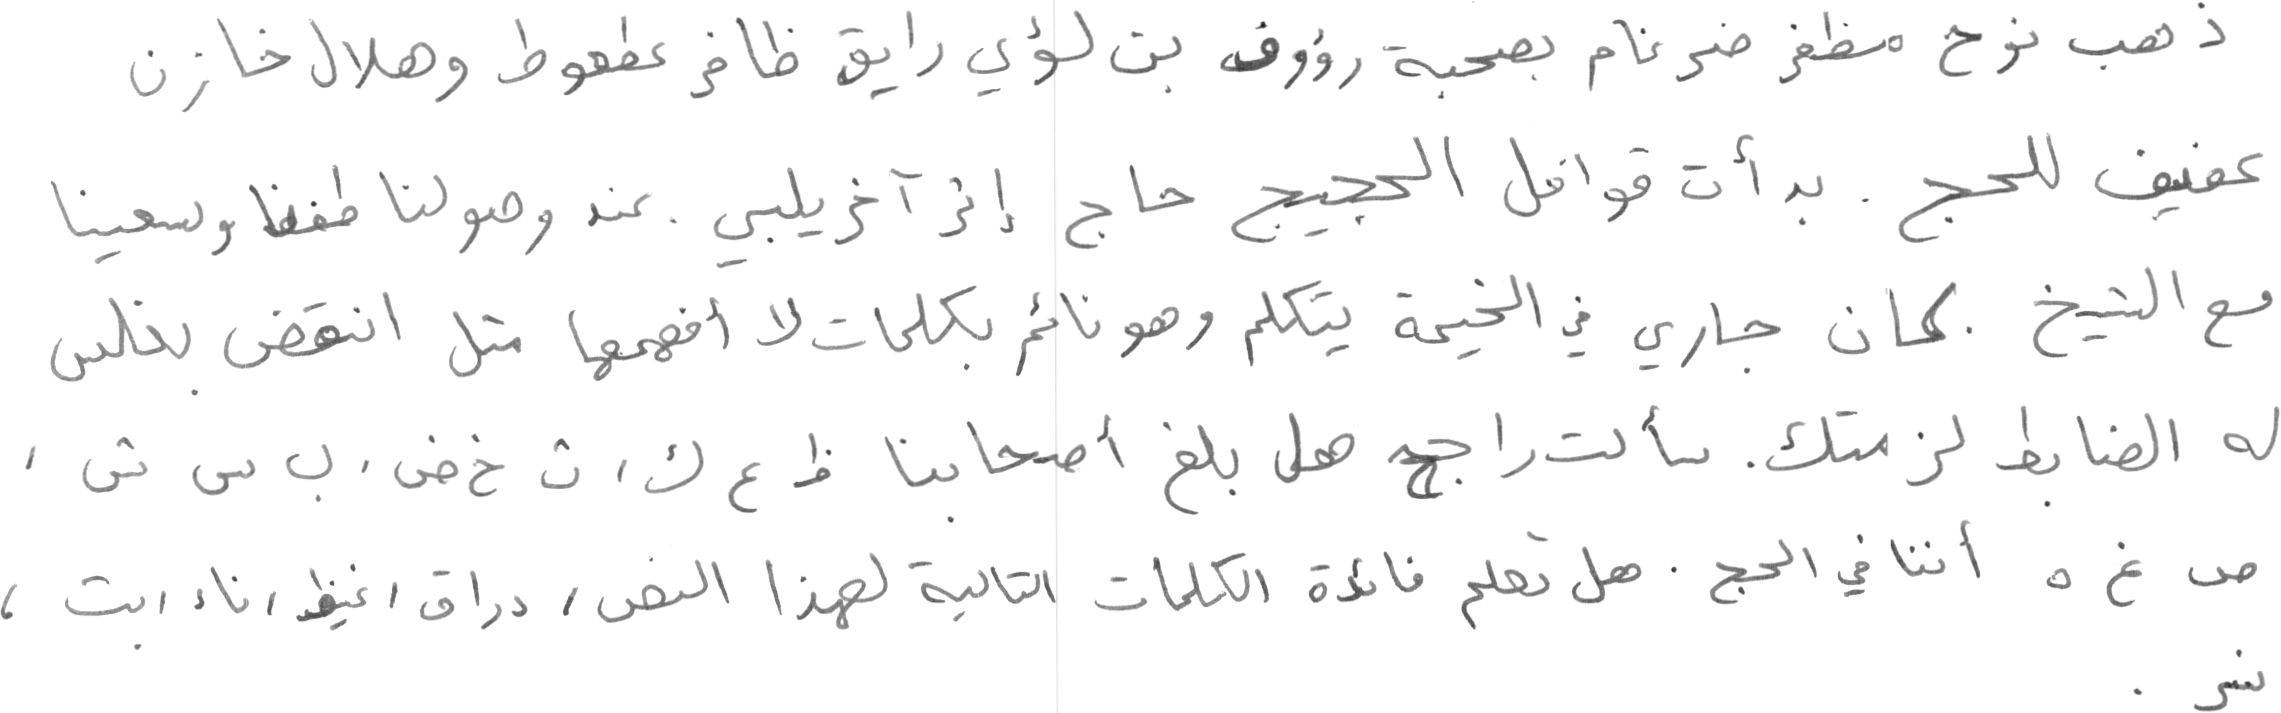 ذهب نوح مظفر ضرغام بصحبة رؤوف بن لؤي رايق ظافر عطعوط وهلال خازن
عفيف للحج . بدأت قوافل الحجيج حاج إثر آخر يلبي . عند وصولنا طفنا وسعينا
مع الشيخ . كان جاري في الخيمة يتكلم وهو نائم بكلمات لا أفهمها مثل انقض بغلس
له الضابط لزمتك . سألت راجح هل بلغ أصحابنا ظ ع ك ، ث خ ض ، ب س ش ،
ص غ ه أننا في الحج . هل تعلم فائدة الكلمات التالية لهذا النص ، دراق ، غيظ ، ناء ، بت ،
نسر .